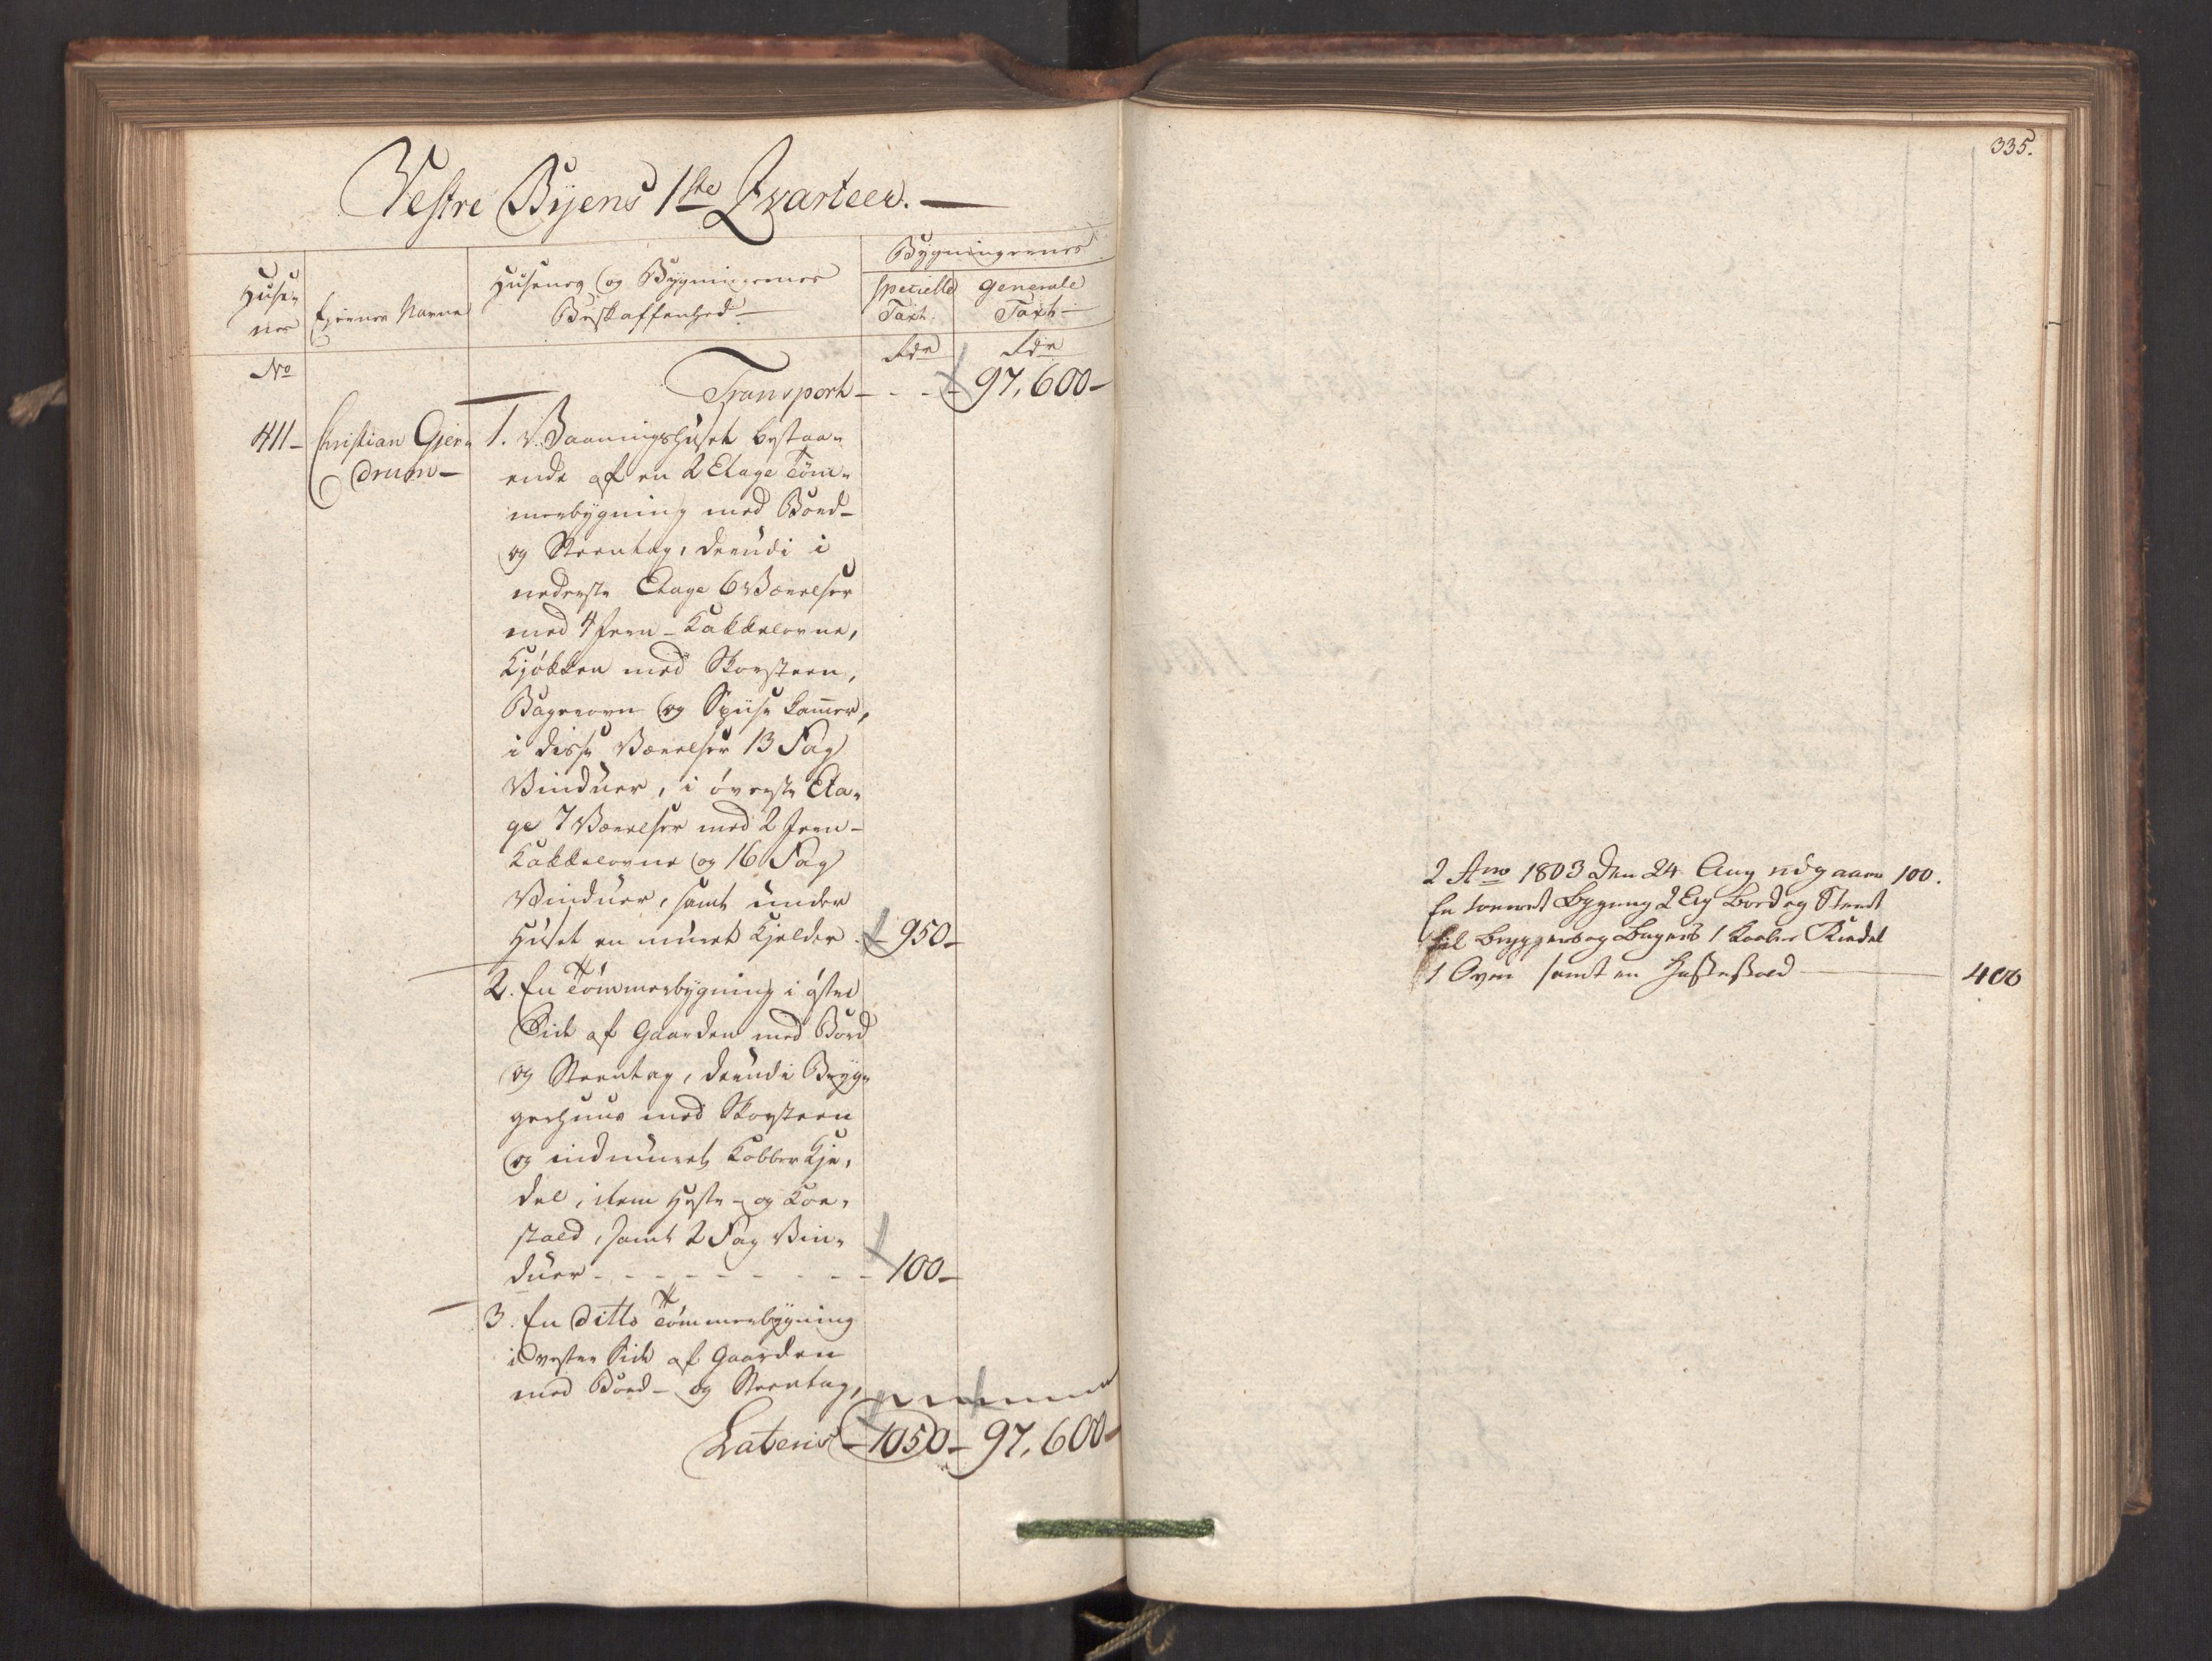 Vestre Byens 1ste Qvarteer.
Huse-
nes
No
Eyernes Navne
Husenes og Bygningernes
Beskaffenhed
Bygningernes
specielle
Taxt
generale
Taxt
Rdr
Rdr
Transport - - - 97,600-
411- Christian Gjer-
drum-
1. Vaaningshuset bestaa-
ende af en 2 Etage Tøm-
merbygning med Bord-
og Steentag, deeudi i
nederste Etage 6 Værelser
med 4 Jern-Kakkelovne,
Kjøkken med Skorsteen,
Bagerovn og Spiise kam̄er,
i disse Værelser 13 Fag
Vinduer, i øverste Eta-
ge 7 Værelser med 2 Jern-
Kakkelovne og 16 Fag
Vinduer, samt under
Huset en muret Kjelder - 950-
2. En Tømmerbygning i østre
Side af Gaarden med Bord
og Steentag, deeudi Bryg-
gerhuus med Skorsteen
og indmuret Kobber Kje-
del, item Heste- og Koe-
stald, samt 2 Fag Vin-
duer - - - - - - - - - 100-
3. En Ditto Tømmerbygning
i vestre Side af Gaarden
med Bord- og Steentag,
Lateris - 1050- 97,600-
335.
2 Ano 1803 den 24 Aug udgaaer 100.
En Bygning 2 Etg Bord og Steent
til Bryggers og Bagers 1 Kobber Kiedel
1 Oven samt en Hestestald - 400